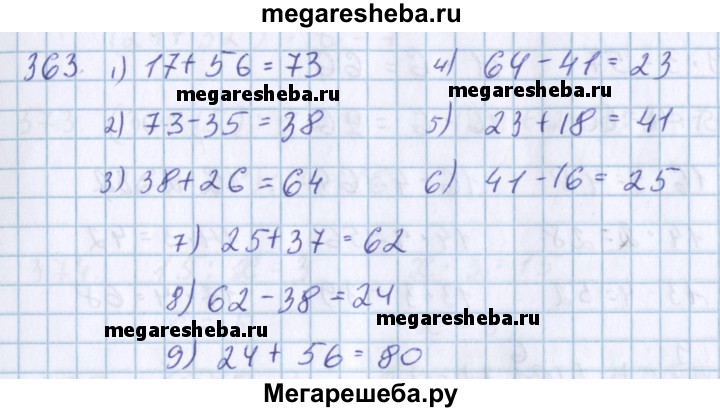 megaresheba.ru
363. 1) 17+56=73 4) 64-41=23
megaresheba.ru megaresheba.ru
2) 73-35=38 5) 23+18=41
3) 38+26=64 6) 41-16=25
7) 25+37=62
8) 62-38=24
megaresheba.ru megaresheba.ru
9) 24+56=80
Мегарешеба.ру